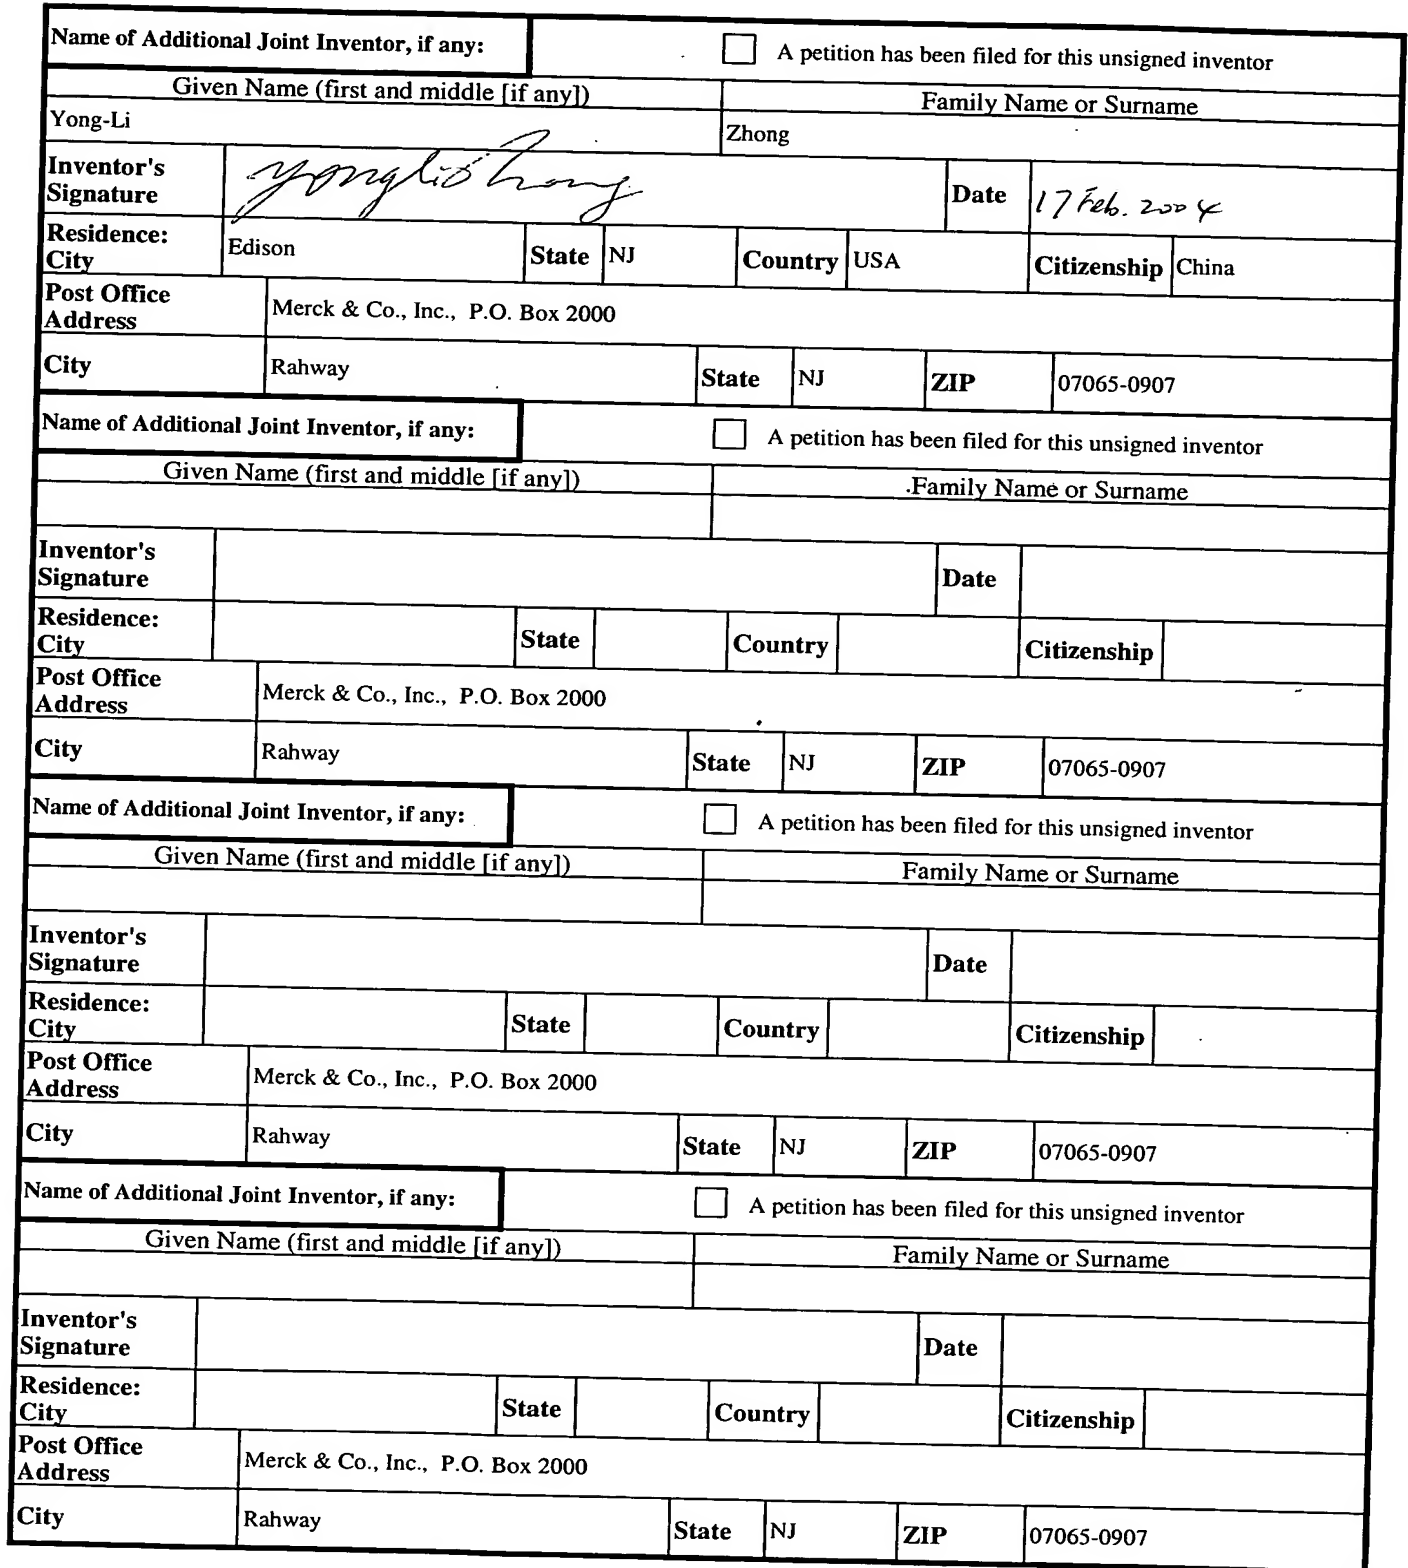 Name of Additional Joint Inventor, if any: A petition has been filed for this unsigned inventor
Given Name (first and middle [if any]) Family Name or Surname
Yong-Li Zhong
Inventor's Signature Yongli Zhong Date 17 Feb. 2004
Residence: City Edison State NJ Country USA Citizenship China
Post Office Address Merck & Co., Inc., P.O. Box 2000
City Rahway State NJ ZIP 07065-0907
Name of Additional Joint Inventor, if any: A petition has been filed for this unsigned inventor
Given Name (first and middle [if any]) Family Name or Surname
Inventor's Signature Date
Residence: City State Country Citizenship
Post Office Address Merck & Co., Inc., P.O. Box 2000
City Rahway State NJ ZIP 07065-0907
Name of Additional Joint Inventor, if any: A petition has been filed for this unsigned inventor
Given Name (first and middle [if any]) Family Name or Surname
Inventor's Signature Date
Residence: City State Country Citizenship
Post Office Address Merck & Co., Inc., P.O. Box 2000
City Rahway State NJ ZIP 07065-0907
Name of Additional Joint Inventor, if any: A petition has been filed for this unsigned inventor
Given Name (first and middle [if any]) Family Name or Surname
Inventor's Signature Date
Residence: City State Country Citizenship
Post Office Address Merck & Co., Inc., P.O. Box 2000
City Rahway State NJ ZIP 07065-0907